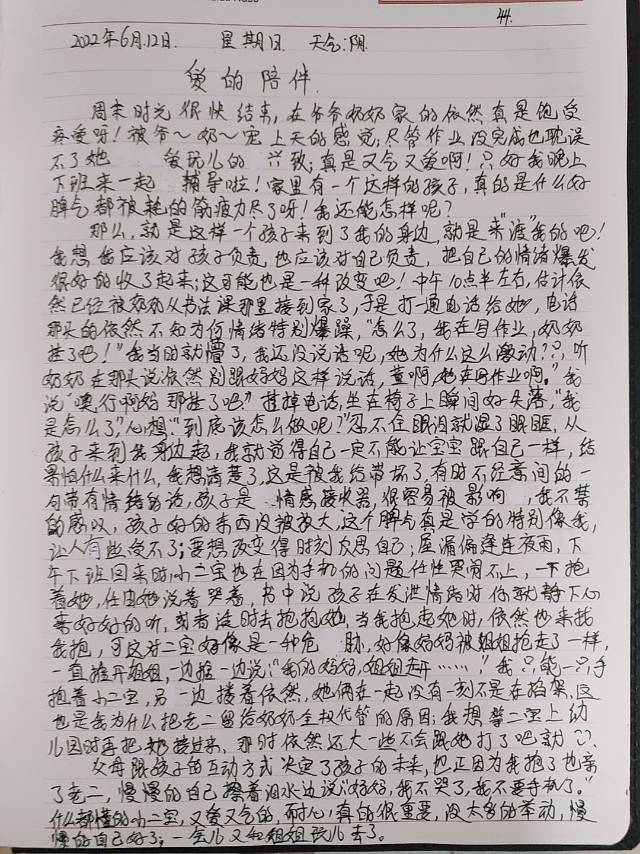 44.
2022年6月12日. 星期日. 天气:阴.
爱的陪伴.
周末时光很快结束,在爷爷奶奶家的依然真是饱受
疼爱呀!被爷~奶~宠上天的感觉,尽管作业没完成也耽误
不了她 爱玩儿的 兴致;真是又气又爱啊!只好我晚上
下班来一起 辅导啦!家里有一个这样的孩子,真的是什么好
脾气都被耗的筋疲力尽了呀!我还能怎样呢?
那么,就是这样一个孩子来到了我的身边,就是来"渡"我的吧!
我想我应该对孩子负责,也应该对自己负责,把自己的情绪爆发
很好的收了起来;这可能也是一种改变吧!中午10点半左右,估计依
然已经被奶奶从书法课那里接到家了,于是打一通电话给她,电话
那头的依然不知为何情绪特别爆躁,"怎么了,我在写作业,奶奶
挂了吧!"我当时就懵了,我还没说话呢,她为什么这么激动??,听
奶奶在那头说依然别跟妈妈这样说话,董啊,她在写作业啊。"我
说"噢,行啊妈 那挂了吧?"挂掉电话,坐在椅子上瞬间好失落,"我
是怎么了",心想"到底该怎么做呢?"忍不住眼泪就湿了眼眶,从
孩子来到我身边起,我就觉得自己一定不能让宝宝跟自己一样,结
果怕什么来什么,我想清楚了,这是被我给带坏了,有时不经意间的一
句带有情绪的话,孩子是 情感接收器,很容易被影响 ,我不禁
的感叹,孩子好的东西没被放大,这个脾气真是学的特别像我,
让人有些受不了;要想改变得时刻反思自己;屋漏偏逢连夜雨,下
午下班回来时,小二宝也在因为手机的问题任性哭闹不止,一下抱
着她,任由她说着哭着,书中说孩子在发泄情绪时你就静下心
来好好的听,或者适时去抱抱她,当我抱起她时,依然也来找
我抱,可这对二宝好像是一种危 胁,好像妈妈被姐姐抢走了一样,
一直推开姐姐,一边推一边说:"我的妈妈,姐姐走开……,"我只能一只手
抱着小二宝,另一边搂着依然,她俩在一起没有一刻不是在掐架,这
也是我为什么把老二留给奶奶全权代管的原因;我想等二宝上幼
儿园时再把她接过来,那时依然还大一些不会跟她打了吧就??
父母跟孩子的互动方式决定了孩子的未来,也正因为我抱了也亲
了老二,慢慢的自己擦着泪水边说:"妈妈,我不哭了,我不要手机了。"
什么都懂的小二宝,又爱又气的,耐心,真的很重要,没太多的举动,慢
慢的自己好了;一会儿又和姐姐玩儿去了。